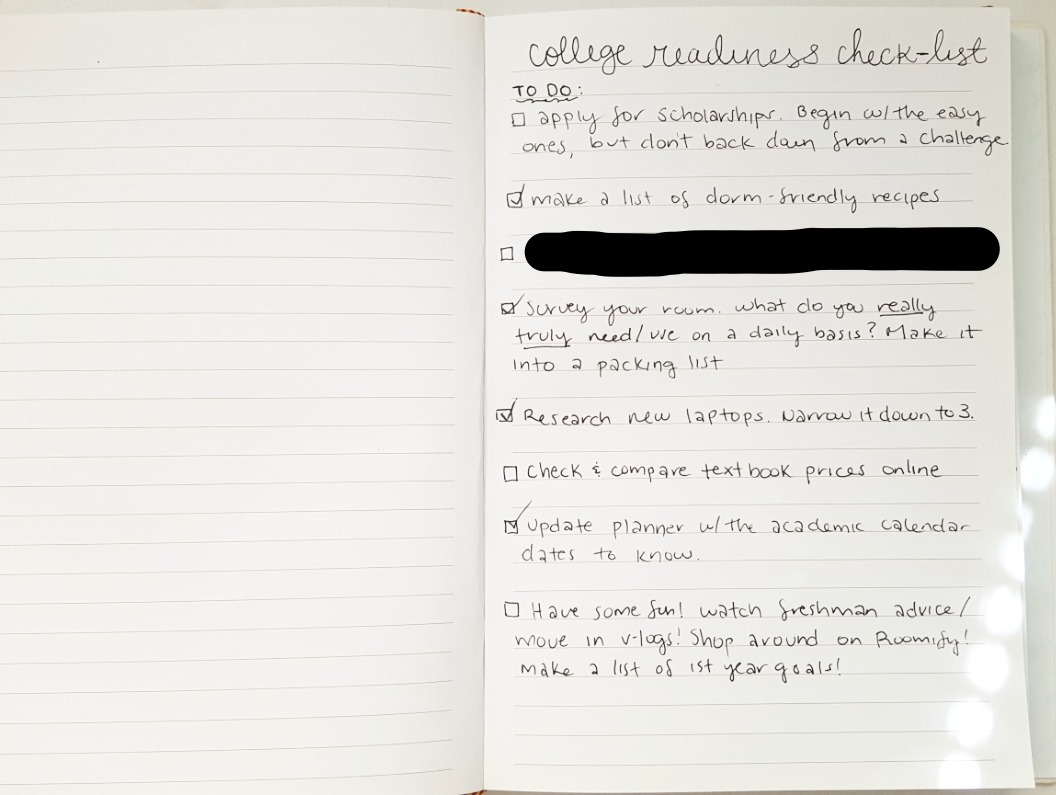 college readiness check-list
TO DO:
☐ apply for scholarships. Begin w/the easy
ones, but don't back down from a challenge.
☑ make a list of dorm-friendly recipes
☐
☑ Survey your room. what do you really
truly need/use on a daily basis? Make it
into a packing list
☑ Research new laptops. Narrow it down to 3.
☐ Check & compare textbook prices online
☑ Update planner w/the academic calendar
dates to know.
☐ Have some fun! watch freshman advice/
move in v-logs! Shop around on Roomify!
Make a list of 1st year goals!